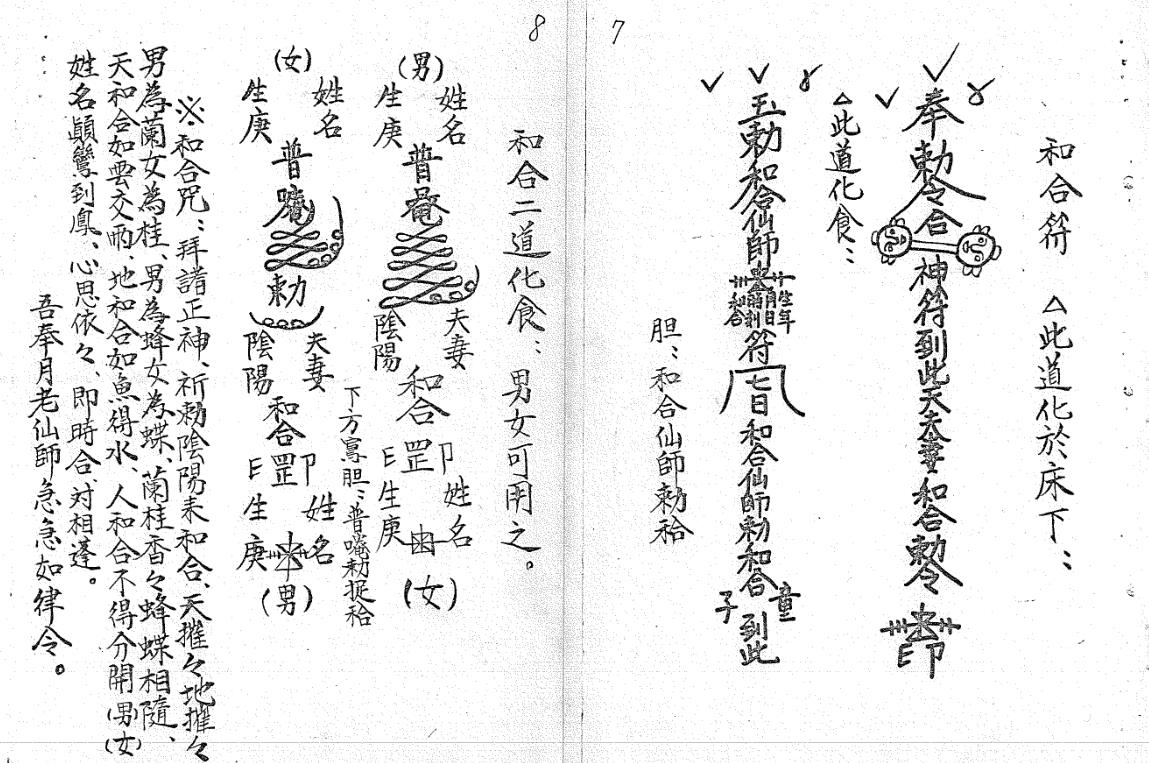 7
和合符 △此道化於床下：
奉勅令合神符到此天夫妻和合勅令
印
△此道化食：
玉勅和合仙師
生年
月日
符
七日和合仙師勅和合
童子
到此
胆：和合仙師勅袷
8
和合二道化食：男女可用之。
(男)
姓名
生庚
普庵
夫妻
陰陽
和合罡印
姓名
生庚
(女)
下方寫胆：普唵勅捉袷
(女)
姓名
生庚
普唵
勅
夫妻
陰陽
和合罡印
姓名
生庚
(男)
※和合咒：拜請正神、祈勅陰陽來和合、天摧々地摧々
男為蘭女為桂、男為蜂女為蝶、蘭桂香々蜂蝶相隨、
天和合如雲交雨、地和合如魚得水、人和合不得分開(男)(女)
姓名顛鸞到鳳、心思依々、即時合、対相逢。
吾奉月老仙師急急如律令。